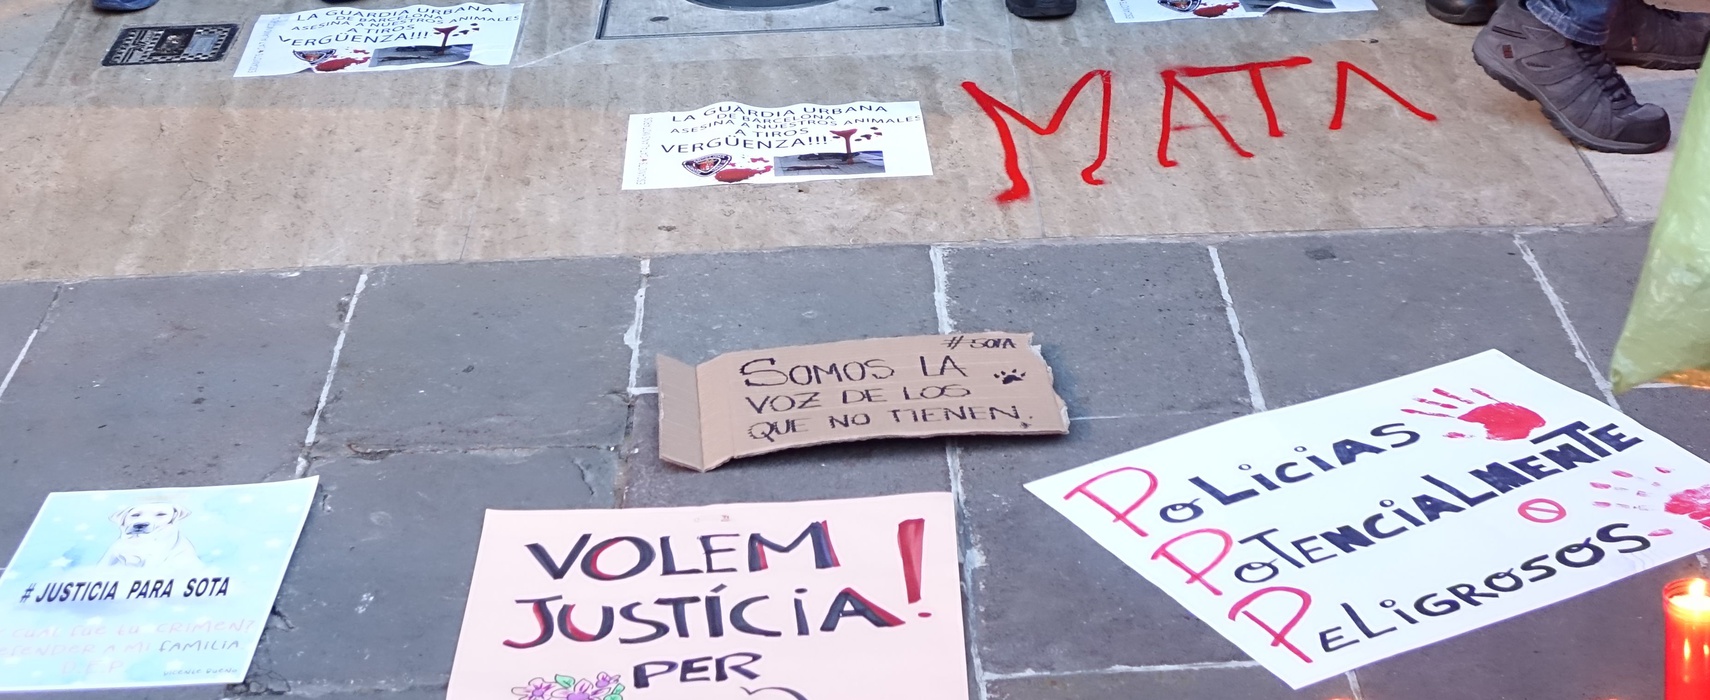 LA GUARDIA URBANA
DE BARCELONA
ASESINA A NUESTROS ANIMALES
A TIROS
VERGÜENZA!!!
LA GUARDIA URBANA
DE BARCELONA
ASESINA A NUESTROS ANIMALES
A TIROS
VERGÜENZA!!!
MATA
# SOTA
SOMOS LA
VOZ DE LOS
QUE NO TIENEN.
POLICIAS
POTENCIALMENTE
PELIGROSOS
# JUSTICIA PARA SOTA
CUAL FUE LU CRIMEN?
DEFENDER A MI FAMILIA
D.E.P.
VOLEM
JUSTÍCIA!
PER